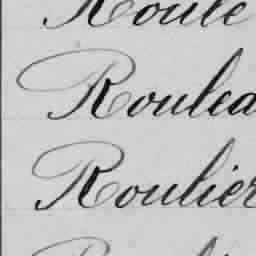 Roule
Roulea
Roulier